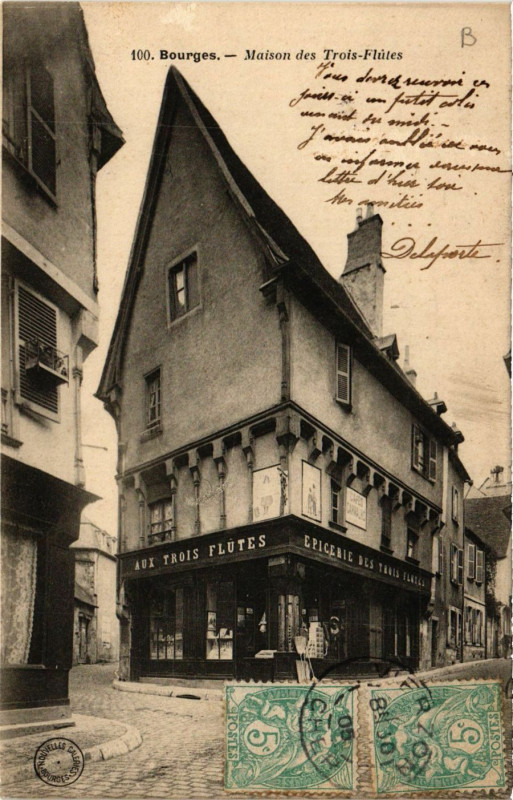 B
100. Bourges. — Maison des Trois-Flûtes
Vous devez recevoir ces
jours-ci un petit colis
venant du midi. -
J'avais oublié de vous
en informer dans une
lettre d'hier soir
Mes amitiés
Delaporte.
AUX TROIS FLÛTES
EPICERIE DES TROIS FLUTES
NOUVELLES GALERIES
BOURGES
5
POSTES
05
CHER
5
POSTES